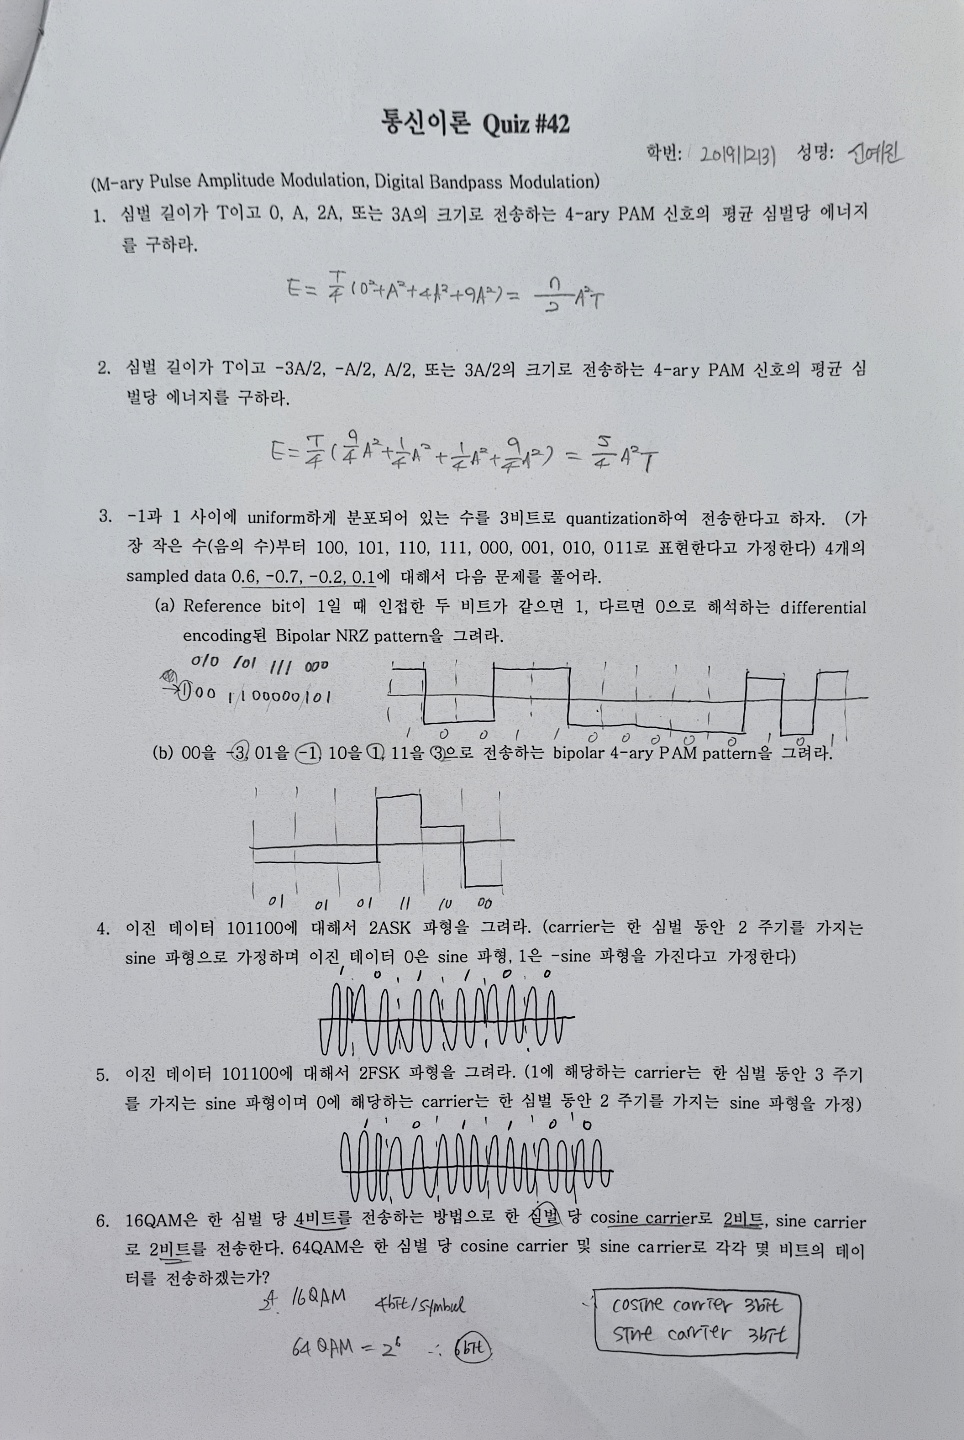 통신이론 Quiz #42
학번: 2019112131 성명: 신예린
(M-ary Pulse Amplitude Modulation, Digital Bandpass Modulation)
1. 심벌 길이가 T이고 0, A, 2A, 또는 3A의 크기로 전송하는 4-ary PAM 신호의 평균 심벌당 에너지
를 구하라.
E = T/4 (0²+A²+4A²+9A²) = 7/2 A²T
2. 심벌 길이가 T이고 -3A/2, -A/2, A/2, 또는 3A/2의 크기로 전송하는 4-ary PAM 신호의 평균 심
벌당 에너지를 구하라.
E = T/4 (9/4 A² + 1/4 A² + 1/4 A² + 9/4 A²) = 5/4 A²T
3. -1과 1 사이에 uniform하게 분포되어 있는 수를 3비트로 quantization하여 전송한다고 하자. (가
장 작은 수(음의 수)부터 100, 101, 110, 111, 000, 001, 010, 011로 표현한다고 가정한다) 4개의
sampled data 0.6, -0.7, -0.2, 0.1에 대해서 다음 문제를 풀어라.
(a) Reference bit이 1일 때 인접한 두 비트가 같으면 1, 다르면 0으로 해석하는 differential
encoding된 Bipolar NRZ pattern을 그려라.
010 101 111 000
→ 1 00 1 1 00000 101
1 0 0 1 1 0 0 0 0 0 1 0 1
(b) 00을 -3, 01을 -1, 10을 1, 11을 3으로 전송하는 bipolar 4-ary PAM pattern을 그려라.
01 01 01 11 10 00
4. 이진 데이터 101100에 대해서 2ASK 파형을 그려라. (carrier는 한 심벌 동안 2 주기를 가지는
sine 파형으로 가정하며 이진 데이터 0은 sine 파형, 1은 -sine 파형을 가진다고 가정한다)
1 0 1 1 0 0
5. 이진 데이터 101100에 대해서 2FSK 파형을 그려라. (1에 해당하는 carrier는 한 심벌 동안 3 주기
를 가지는 sine 파형이며 0에 해당하는 carrier는 한 심벌 동안 2 주기를 가지는 sine 파형을 가정)
1 0 1 1 0 0
6. 16QAM은 한 심벌 당 4비트를 전송하는 방법으로 한 심벌 당 cosine carrier로 2비트, sine carrier
로 2비트를 전송한다. 64QAM은 한 심벌 당 cosine carrier 및 sine carrier로 각각 몇 비트의 데이
터를 전송하겠는가?
16QAM 4bit/symbol
64 QAM = 2⁶ ∴ 6bit
∴ cosine carrier 3bit
sine carrier 3bit